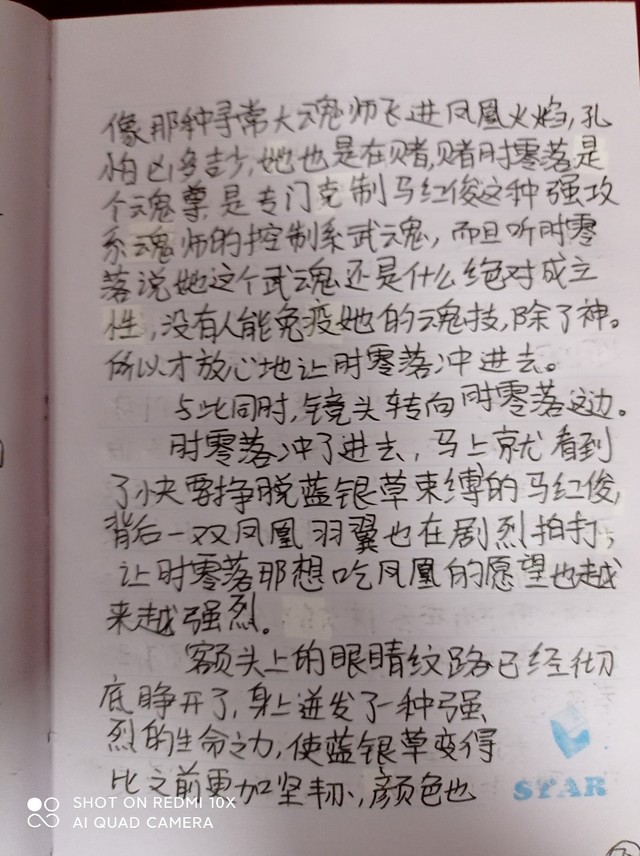 像那种寻常大魂师飞进凤凰火焰,孔
怕凶多吉少,她也是在赌,赌时零落是
个魂尊,是专门克制马红俊这种强攻
系魂师的控制系武魂,而且听时零
落说她这个武魂还是什么绝对成立
性,没有人能免疫她的魂技,除了神。
所以才放心地让时零落冲进去。
与此同时,镜头转向时零落这边。
时零落冲了进去,马上就看到
了快要挣脱蓝银草束缚的马红俊,
背后一双凤凰羽翼也在剧烈拍打,
让时零落那想吃凤凰的愿望也越
来越强烈。
额头上的眼睛纹路已经彻
底睁开了,身上迸发了一种强
烈的生命之力,使蓝银草变得
比之前更加坚韧,颜色也
STAR
SHOT ON REDMI 10X
AI QUAD CAMERA